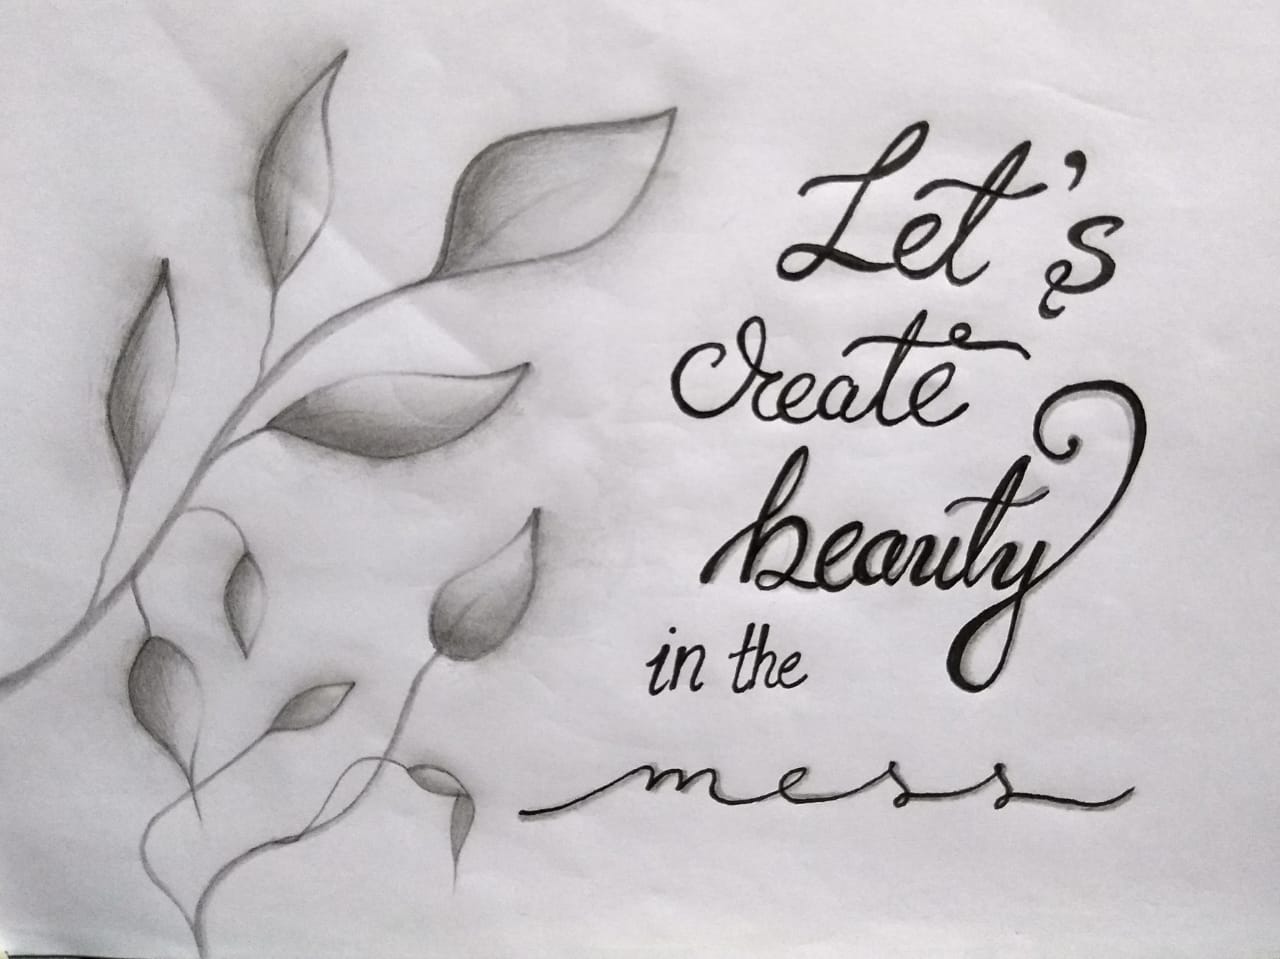 Let's
create
beauty
in the
mess